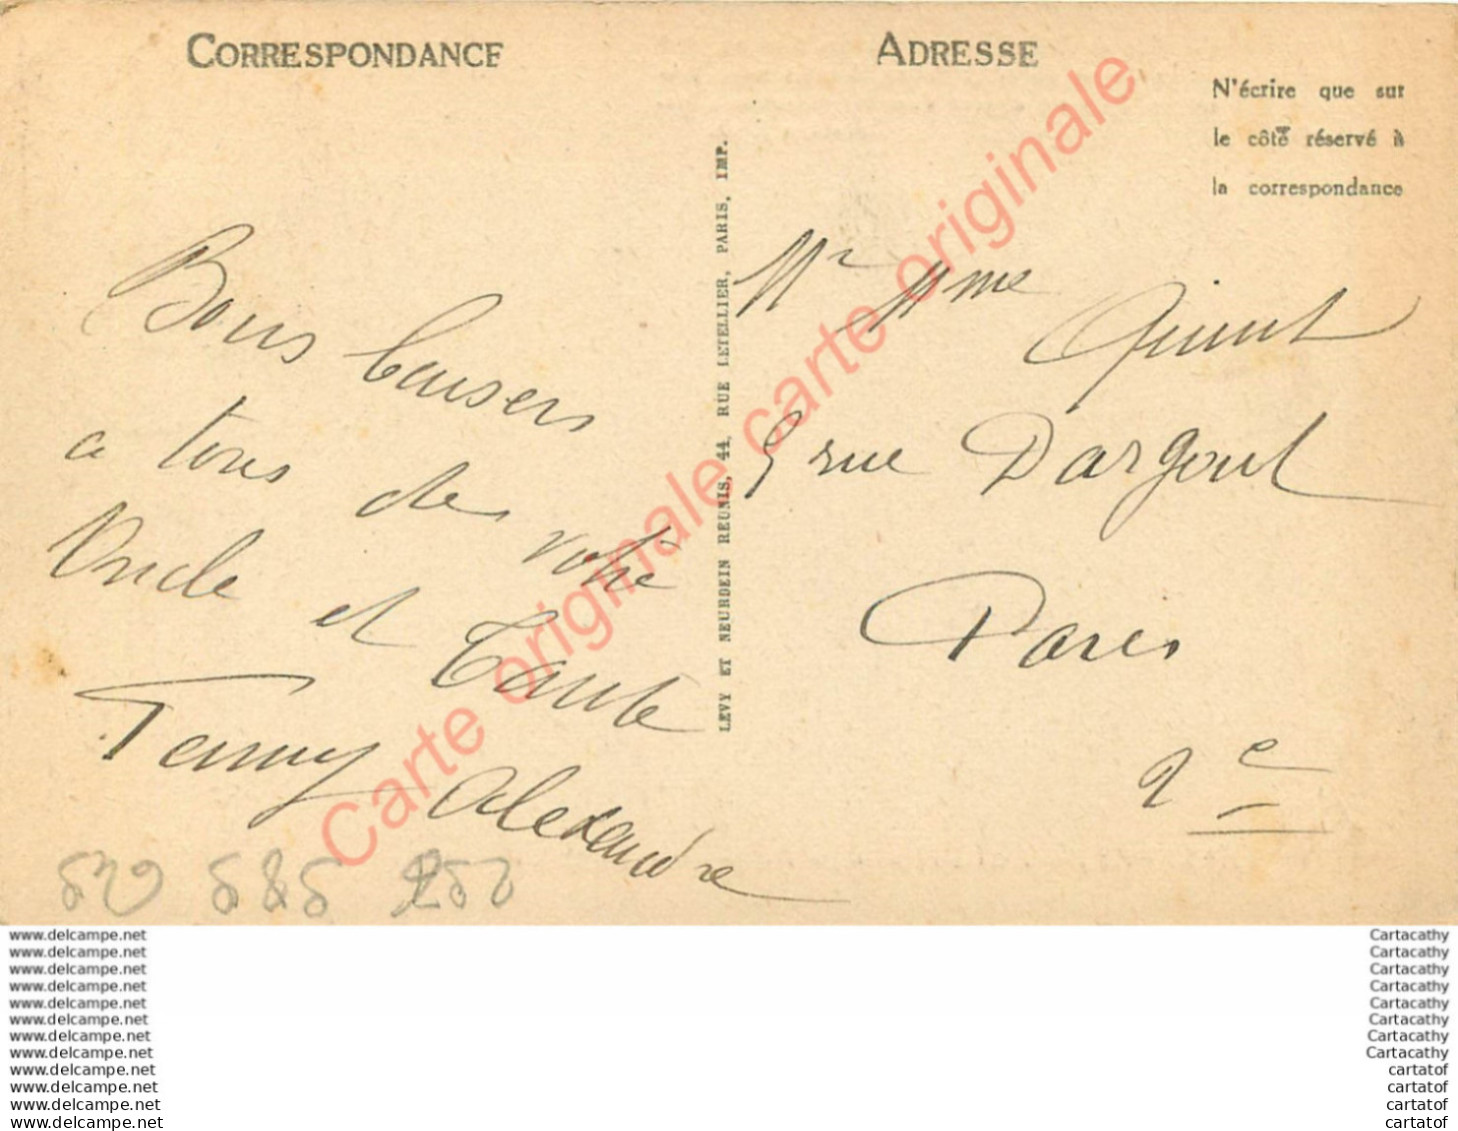 CORRESPONDANCE
Bons baisers
a tous de votre
Oncle et Tante
Alexandre
529 585 250
LEVY ET NEURDEIN REUNIS, 44, RUE LETELLIER, PARIS, IMP.
ADRESSE
N'écrire que sur
le côté réservé à
la correspondance
Mr Mme
rue Dargout
Paris
2e
Carte originale carte originale
www.delcampe.net
www.delcampe.net
www.delcampe.net
www.delcampe.net
www.delcampe.net
www.delcampe.net
www.delcampe.net
www.delcampe.net
www.delcampe.net
www.delcampe.net
www.delcampe.net
www.delcampe.net
Cartacathy
Cartacathy
Cartacathy
Cartacathy
Cartacathy
Cartacathy
Cartacathy
Cartacathy
cartatof
cartatof
cartatof
cartatof